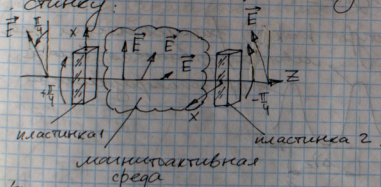 стинку.
E E E E E
x Z
+π/4 -π/4
x
пластинка 1 пластинка 2
магнитоактивная
среда